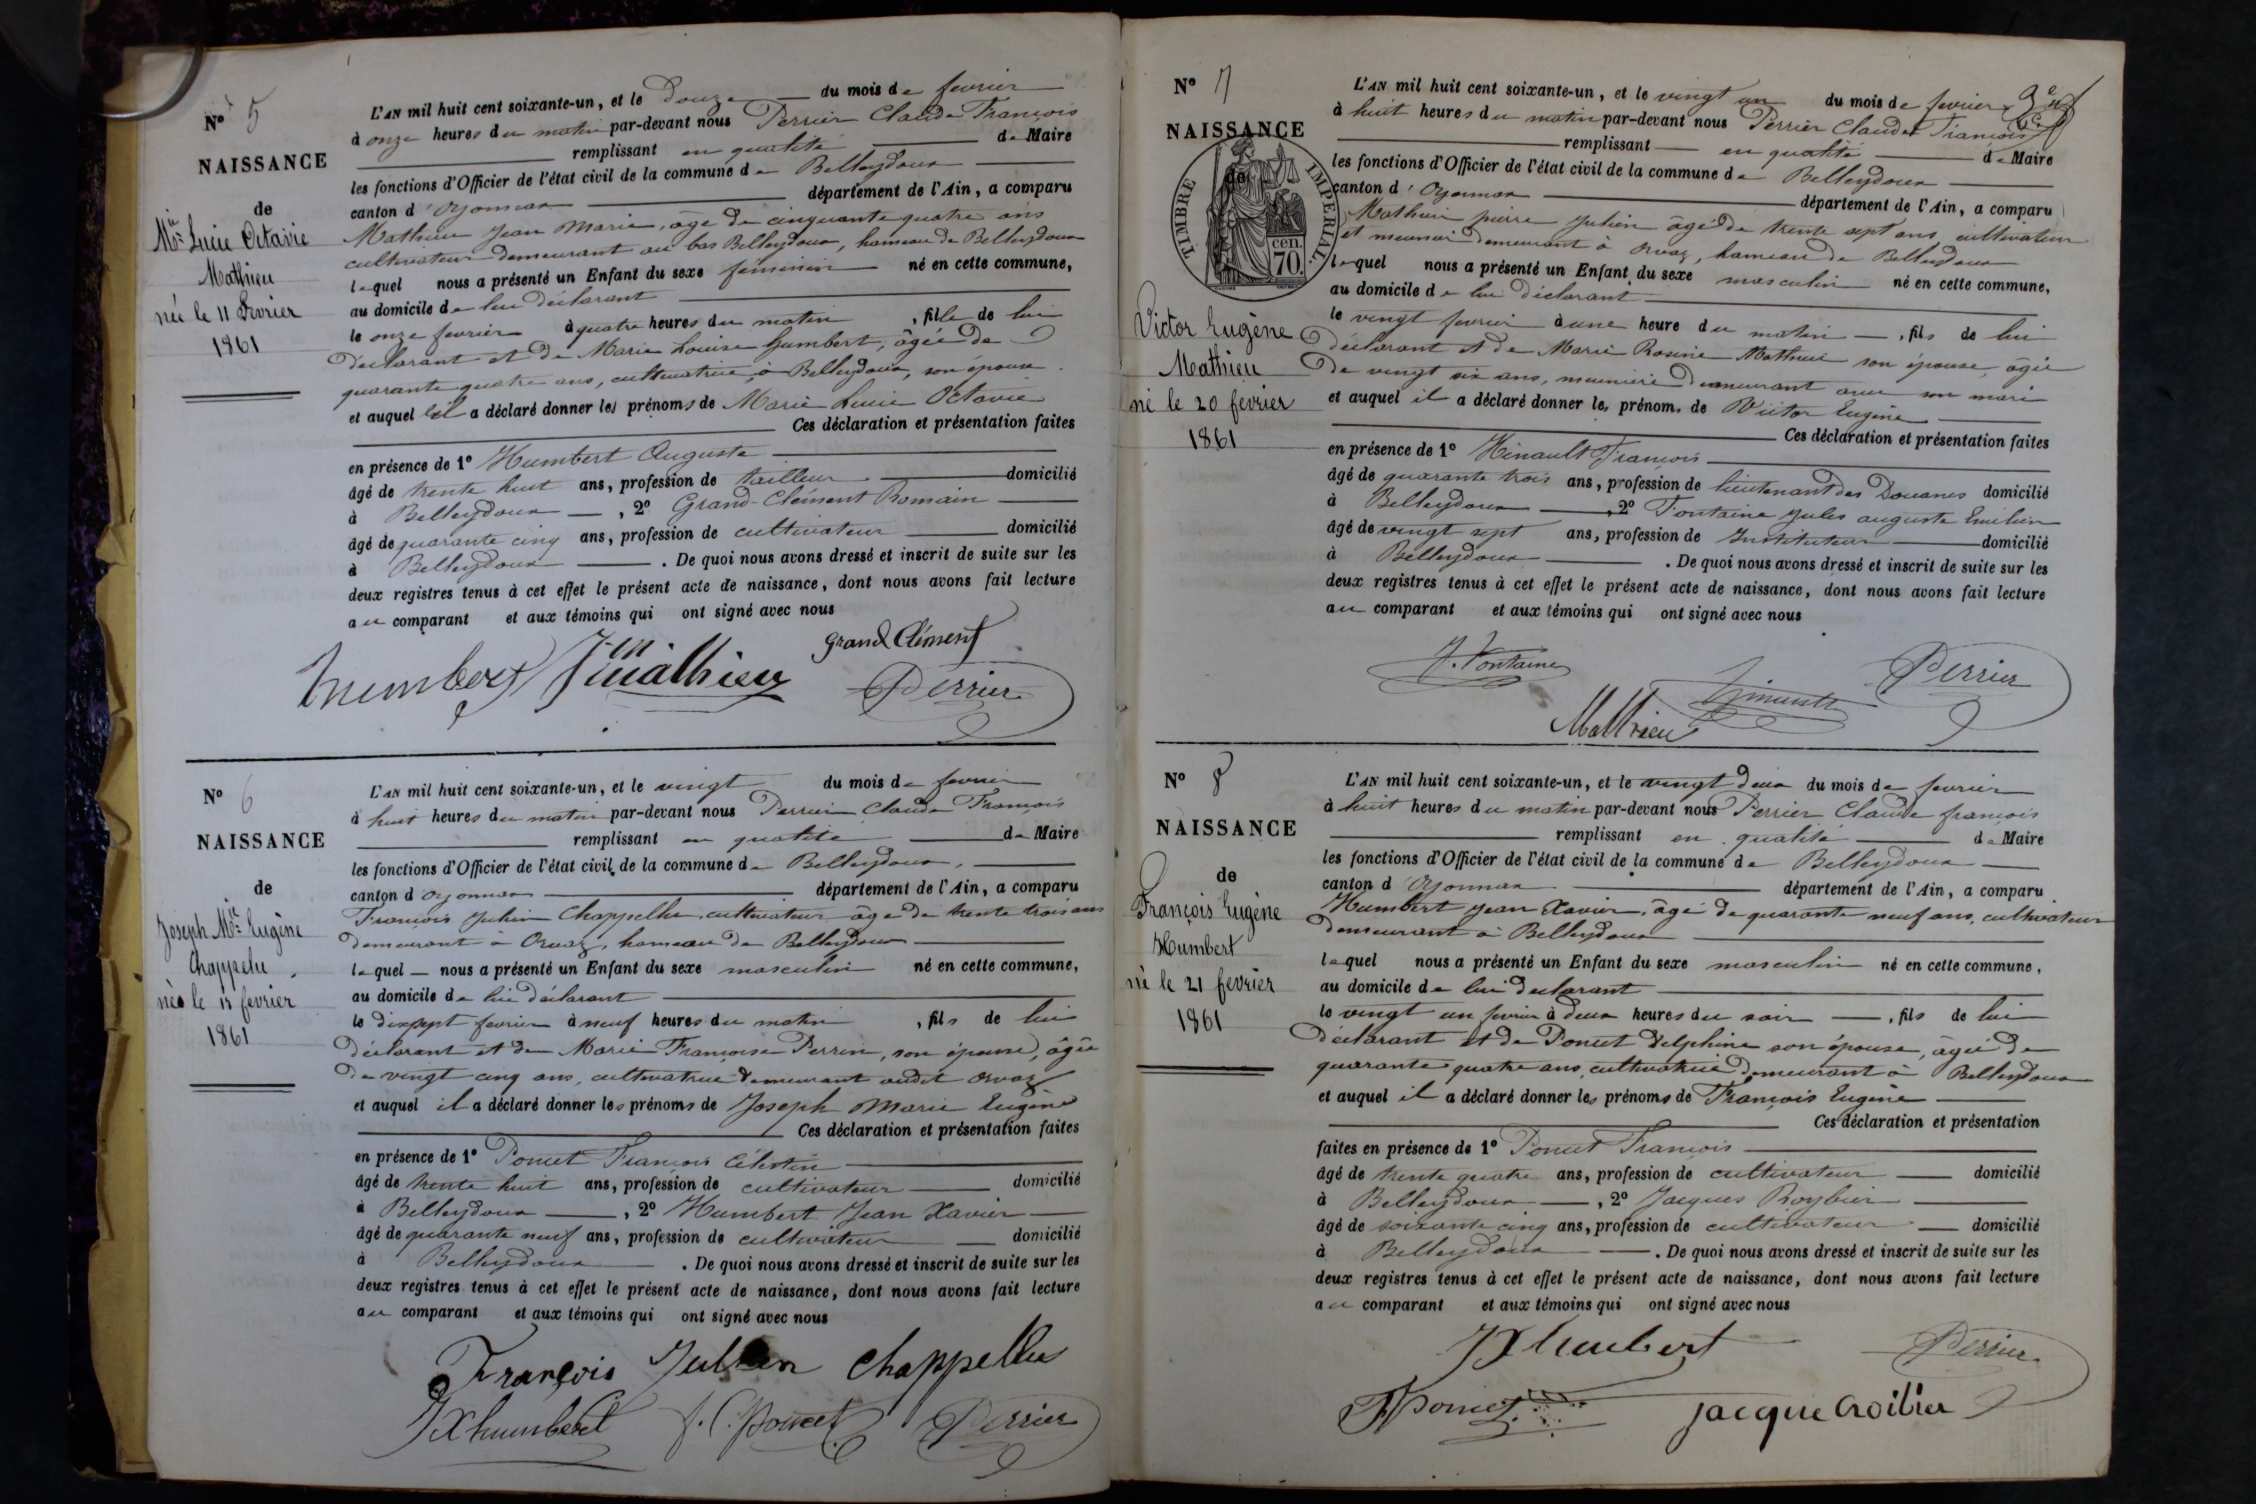 N° 5
NAISSANCE
de
Mie Lucie Octavie
Mathieu
née le 11 Fevrier
1861
L'AN mil huit cent soixante-un, et le douze du mois de fevrier
à onze heures du matin par-devant nous Perrier Claude François
remplissant en qualité de Maire
les fonctions d'Officier de l'état civil de la commune de Belleydoux
canton d'Oyonnax département de l'Ain, a comparu
Mathieu Jean Marie, âgé de cinquante quatre ans
cultivateur demeurant au bas Belleydoux, hameau de Belleydoux
lequel nous a présenté un Enfant du sexe féminin né en cette commune,
au domicile de lui déclarant
le onze fevrier à quatre heures du matin, fille de lui
déclarant et de Marie Louise Humbert, âgée de
quarante quatre ans, cultivatrice, à Belleydoux, son épouse
et auquel il a déclaré donner les prénoms de Marie Lucie Octavie
Ces déclaration et présentation faites
en présence de 1° Humbert Auguste
âgé de trente huit ans, profession de tailleur domicilié
à Belleydoux, 2° Grand-Clément Romain
âgé de quarante cinq ans, profession de cultivateur domicilié
à Belleydoux. De quoi nous avons dressé et inscrit de suite sur les
deux registres tenus à cet effet le présent acte de naissance, dont nous avons fait lecture
au comparant et aux témoins qui ont signé avec nous
humbert J m mathieu grand Clément
Perrier
N° 6
NAISSANCE
de
Joseph Mie Eugène
Chappelu
née le 17 fevrier
1861
L'AN mil huit cent soixante-un, et le vingt du mois de fevrier
à huit heures du matin par-devant nous Perrier Claude François
remplissant en qualité de Maire
les fonctions d'Officier de l'état civil de la commune de Belleydoux,
canton d'oyonnax département de l'Ain, a comparu
François Julien Chappellu, cultivateur âgé de trente trois ans
demeurant à Orvaz, hameau de Belleydoux
lequel nous a présenté un Enfant du sexe masculin né en cette commune,
au domicile de lui déclarant
le dixsept fevrier à neuf heures du matin, fils de lui
déclarant et de Marie Françoise Perrin, son épouse, âgée
de vingt cinq ans, cultivatrice demeurant audit Orvaz
et auquel il a déclaré donner les prénoms de Joseph Marie Eugène
Ces déclaration et présentation faites
en présence de 1° Poncet François Célestin
âgé de trente huit ans, profession de cultivateur domicilié
à Belleydoux, 2° Humbert Jean Xavier
âgé de quarante neuf ans, profession de cultivateur domicilié
à Belleydoux. De quoi nous avons dressé et inscrit de suite sur les
deux registres tenus à cet effet le présent acte de naissance, dont nous avons fait lecture
au comparant et aux témoins qui ont signé avec nous
François Julien Chappellu
JX humbert f. C. Poncet Perrier
N° 7
NAISSANCE
de
TIMBRE IMPERIAL.
70 cen.
Victor Eugène
Mathieu
né le 20 fevrier
1861
L'AN mil huit cent soixante-un, et le vingt un du mois de fevrier
à huit heures du matin par-devant nous Perrier Claude François
remplissant en qualité de Maire
les fonctions d'Officier de l'état civil de la commune de Belleydoux
canton d'Oyonnax département de l'Ain, a comparu
Mathieu pierre Julien âgé de trente sept ans, cultivateur
et meunier demeurant à Orvaz, hameau de Belleydoux
lequel nous a présenté un Enfant du sexe masculin né en cette commune,
au domicile de lui déclarant
le vingt fevrier à une heure du matin, fils de lui
déclarant et de Marie Rosine Mathieu son épouse âgée
de vingt six ans, meunière demeurant avec son mari
et auquel il a déclaré donner les prénoms de Victor Eugène
Ces déclaration et présentation faites
en présence de 1° Hinault François
âgé de quarante trois ans, profession de lieutenant des Douanes domicilié
à Belleydoux, 2° Fontaine Jules auguste Emilien
âgé de vingt sept ans, profession de Instituteur domicilié
à Belleydoux. De quoi nous avons dressé et inscrit de suite sur les
deux registres tenus à cet effet le présent acte de naissance, dont nous avons fait lecture
au comparant et aux témoins qui ont signé avec nous
J. Fontaine Perrier
Mathieu
N° 8
NAISSANCE
de
François Eugène
Humbert
né le 21 fevrier
1861
L'AN mil huit cent soixante-un, et le vingt deux du mois de fevrier
à huit heures du matin par-devant nous Perrier Claude françois
remplissant en qualité de Maire
les fonctions d'Officier de l'état civil de la commune de Belleydoux
canton d'Oyonnax département de l'Ain, a comparu
Humbert Jean Xavier, âgé de quarante neuf ans, cultivateur
demeurant à Belleydoux
lequel nous a présenté un Enfant du sexe masculin né en cette commune,
au domicile de lui déclarant
le vingt un fevrier à deux heures du soir, fils de lui
déclarant et de Poncet Delphine son épouse, âgée de
quarante quatre ans, cultivatrice demeurant à Belleydoux
et auquel il a déclaré donner les prénoms de François Eugène
Ces déclaration et présentation
faites en présence de 1° Poncet François
âgé de trente quatre ans, profession de cultivateur domicilié
à Belleydoux, 2° Jacques Roybier
âgé de soixante cinq ans, profession de cultivateur domicilié
à Belleydoux. De quoi nous avons dressé et inscrit de suite sur les
deux registres tenus à cet effet le présent acte de naissance, dont nous avons fait lecture
au comparant et aux témoins qui ont signé avec nous
JX humbert Perrier
F Poncet jacque roibier